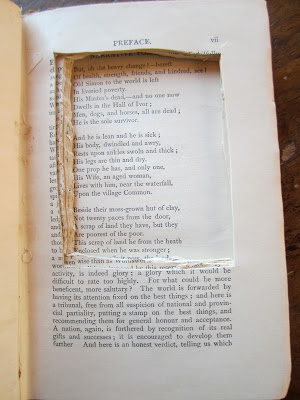 PREFACE. vii
But, oh the heavy change!—bereft
Of health, strength, friends, and kindred, see!
Old Simon to the world is left
In liveried poverty.
His Master's dead,—and no one now
Dwells in the Hall of Ivor;
Men, dogs, and horses, all are dead;
He is the sole survivor.
And he is lean and he is sick;
His body, dwindled and awry,
Rests upon ankles swoln and thick;
His legs are thin and dry.
One prop he has, and only one,
His Wife, an aged woman,
Lives with him, near the waterfall,
Upon the village Common.
Beside their moss-grown hut of clay,
Not twenty paces from the door,
scrap of land they have, but they
Are poorest of the poor.
This scrap of land he from the heath
enclosed when he was stronger;
wise than as
activity, is indeed glory: a glory which it would be
difficult to rate too highly. For what could be more
beneficent, more salutary? The world is forwarded by
having its attention fixed on the best things; and here is
a tribunal, free from all suspicion of national and provin-
cial partiality, putting a stamp on the best things, and
recommending them for general honour and acceptance.
A nation, again, is furthered by recognition of its real
gifts and successes; it is encouraged to develop them
further And here is an honest verdict, telling us which